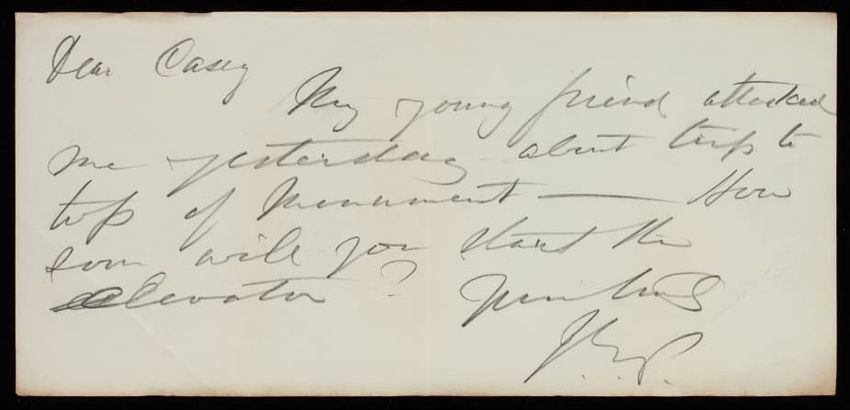 Dear Casey
My young friend attacked
me yesterday about trip to
top of Monument — How
soon will you start the
elevator? Yours truly